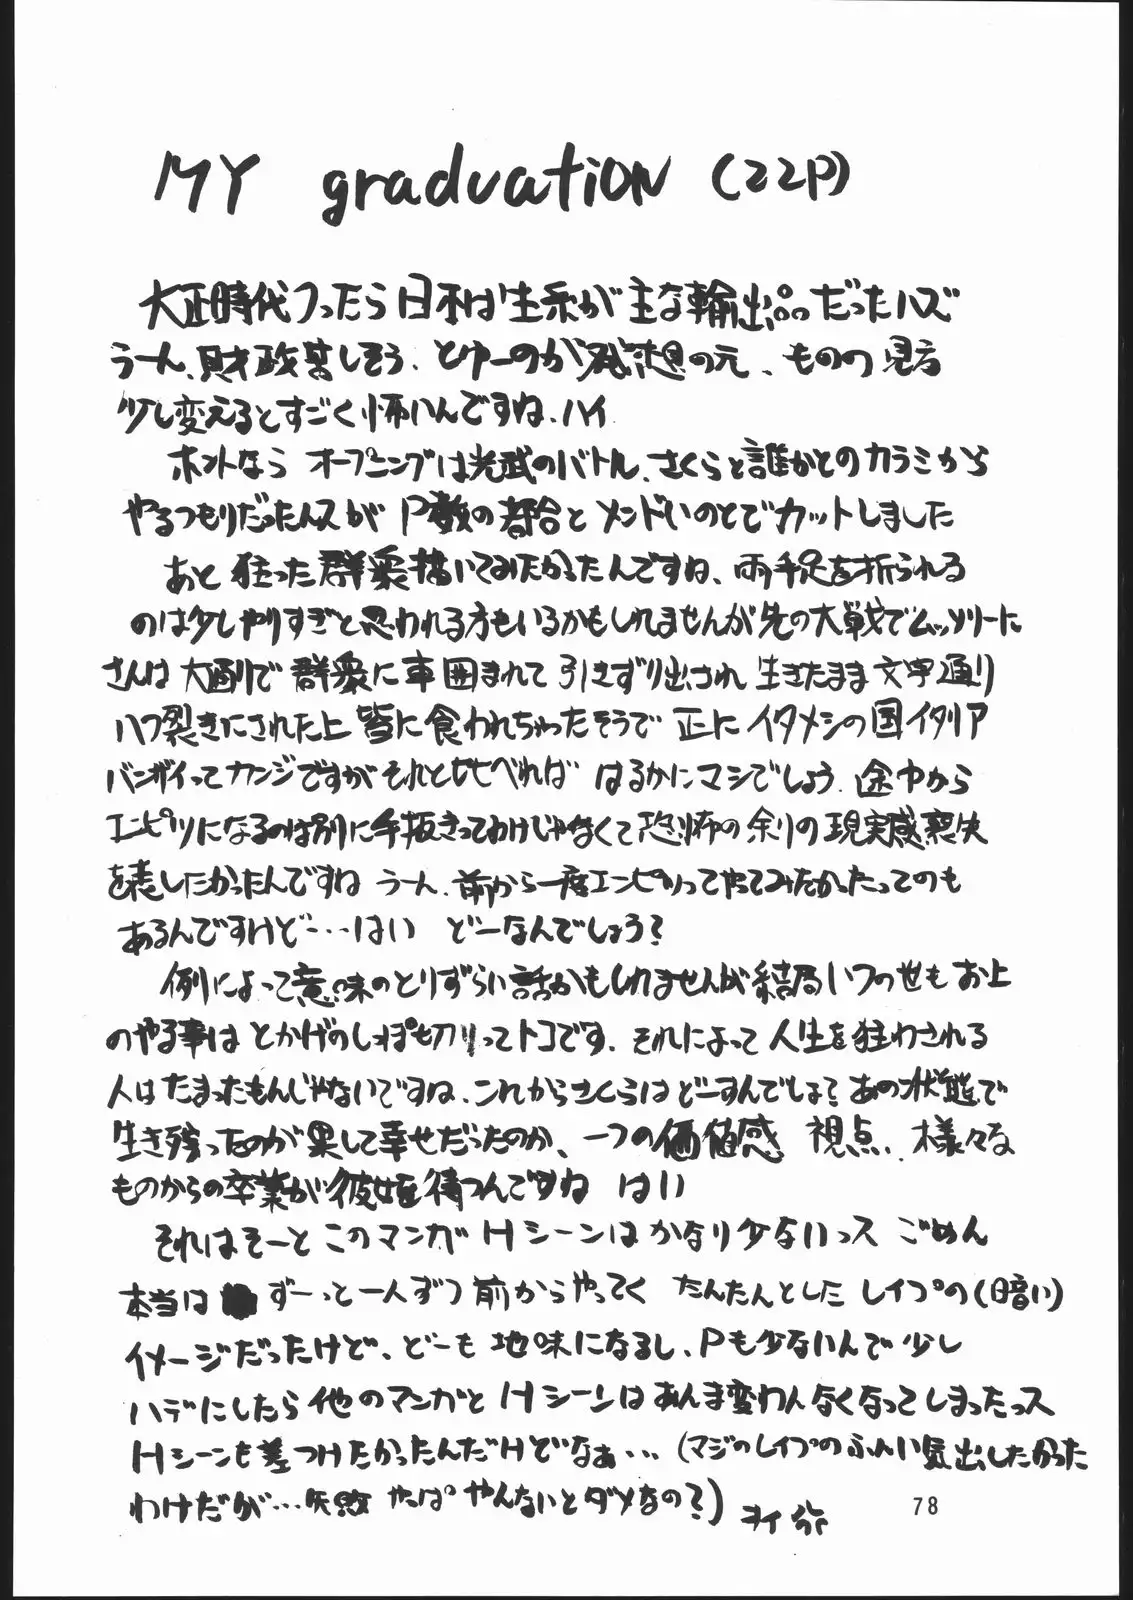 MY graduation (22P)
大正時代つったら日本は生糸が主な輸出品だったハズ
うーん、財政苦しそう、とゆーのが発想の元、ものの見方
少し変えるとすごく怖いんですね、ハイ
ホントなら オープニングは光武のバトル、さくらと誰かとのカラミから
やるつもりだったんスが P数の都合とメンドいのとでカットしました
あと 狂った群衆描いてみたかったんですね、両手足を折られる
のは少しやりすぎと思われる方もいるかもしれませんが先の大戦でムッソリーに
さんは 大通りで 群衆に車囲まれて引きずり出され 生きたまま文字通り
ハつ裂きにされた上 皆に食われちゃったそうで 正にイタメシの国イタリア
バンザイってカンジですがそれと比べれば はるかにマシでしょう、途中から
エンピツになるのは別に手抜きってわけじゃなくて恐怖の余りの現実感喪失
を表したかったんですね うーん、前から一度エンピツってやってみたかったってのも
あるんですけど…はい どーなんでしょう?
例によって意味のとりずらい話かもしれませんが結局いつの世もお上
のやる事はとかげのしっぽ切りってトコです、それによって人生を狂わされる
人はたまったもんじゃないですね、これからさくらはどーすんでしょ?あの状態で
生き残ったのが果して幸せだったのか、一つの価値感 視点、様々な
ものからの卒業が彼女を待つんですね はい
それはそーと このマンガHシーンはかなり少ないっス ごめん
本当は ずーっと一人ずつ前からやってく たんたんとした レイプの(暗い)
イメージだったけど、どーも地味になるし、Pも少ないんで少し
ハデにしたら他のマンガとHシーンはあんま変わんなくなってしまったっス
Hシーンも差つけたかったんだけどなぁ…(マジのレイプのふんい気出したかった
わけだが…失敗 やっぱ やんないとダメなの?)
78